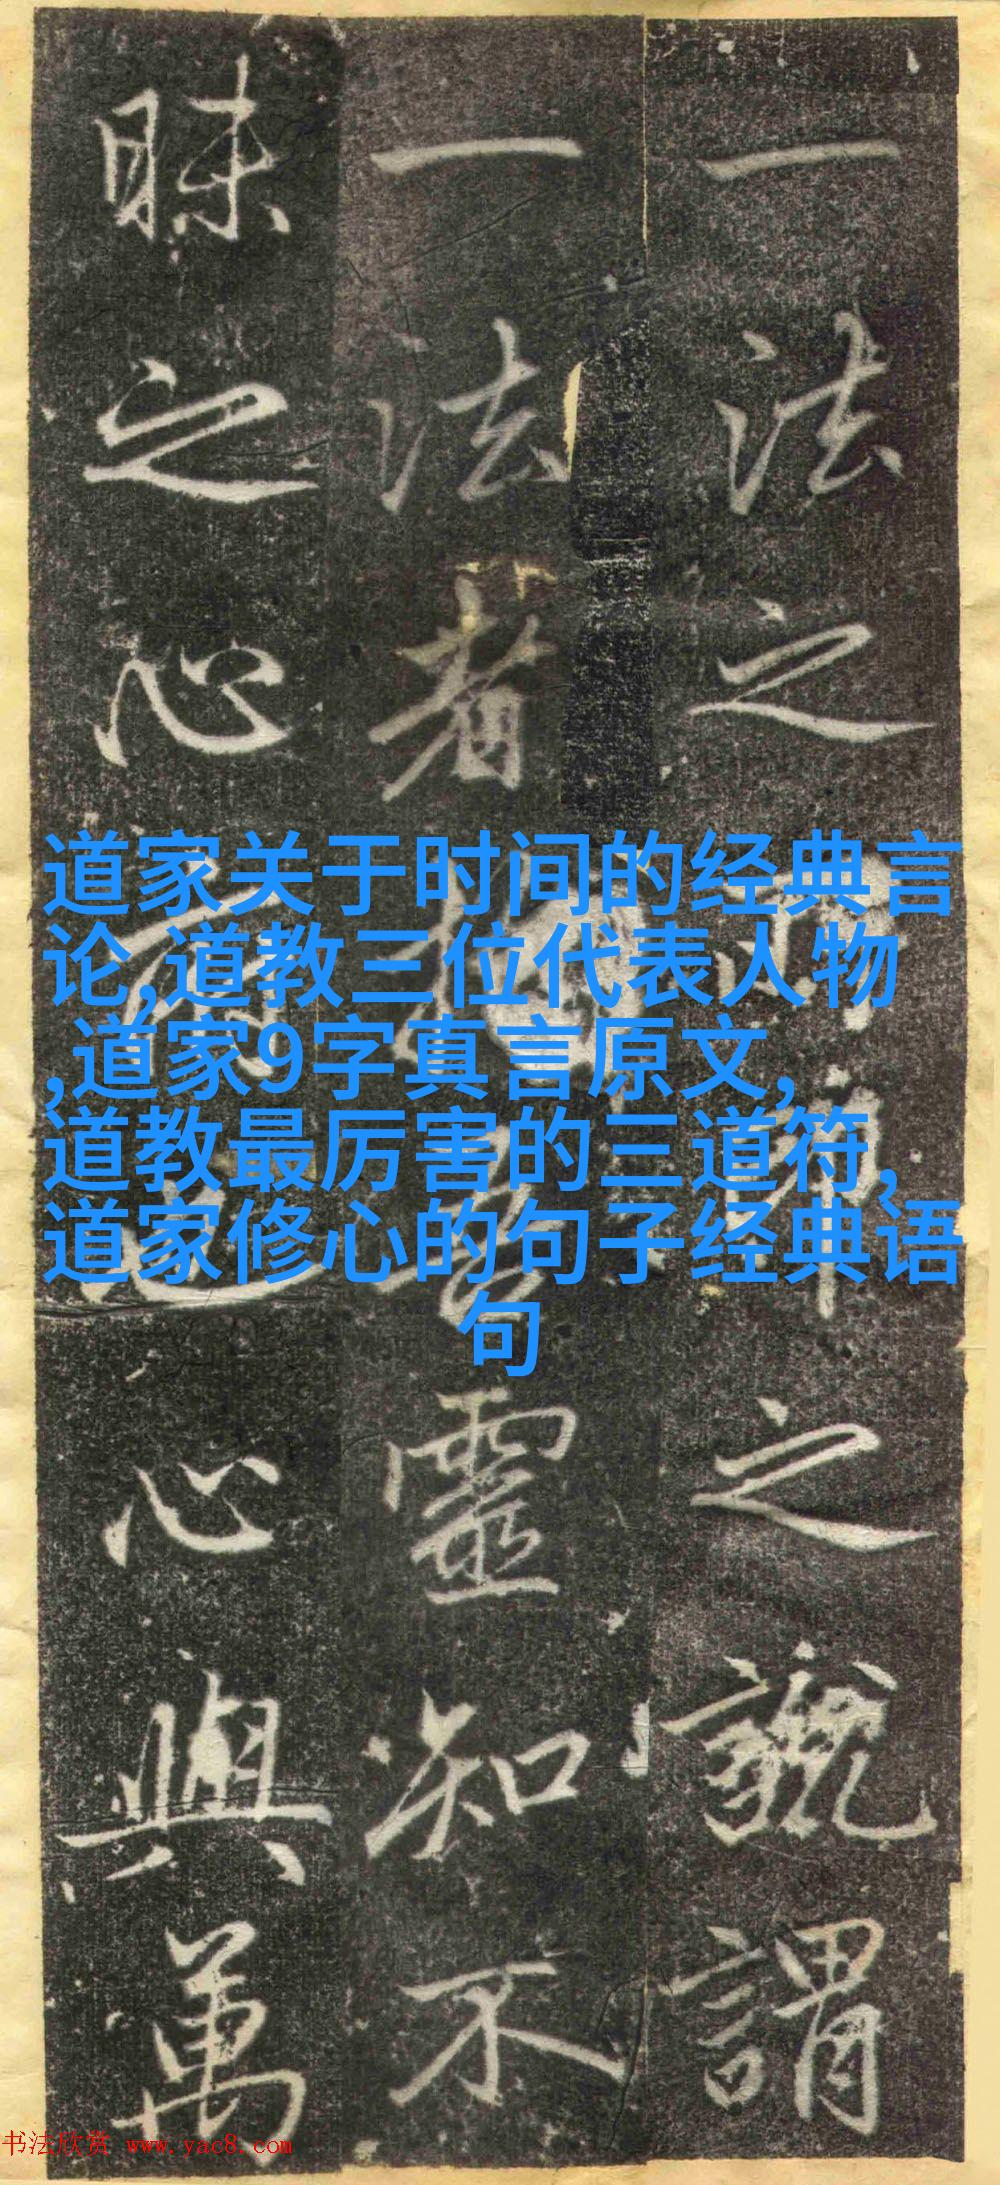 一法之之謂
一法者靈知不
昧之心心與萬
道家关于时间的经典言
论,道教三位代表人物
,道家9字真言原文,
道教最厉害的三道符,
道家修心的句子经典语
句
书法欣赏 www.yac8.com